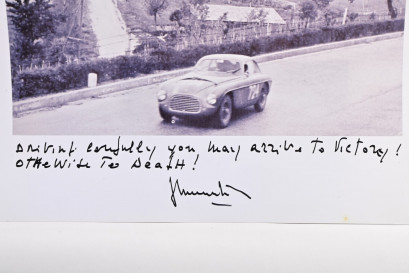 Driving carefully you may arrive to Victory!
Othewise To Death!